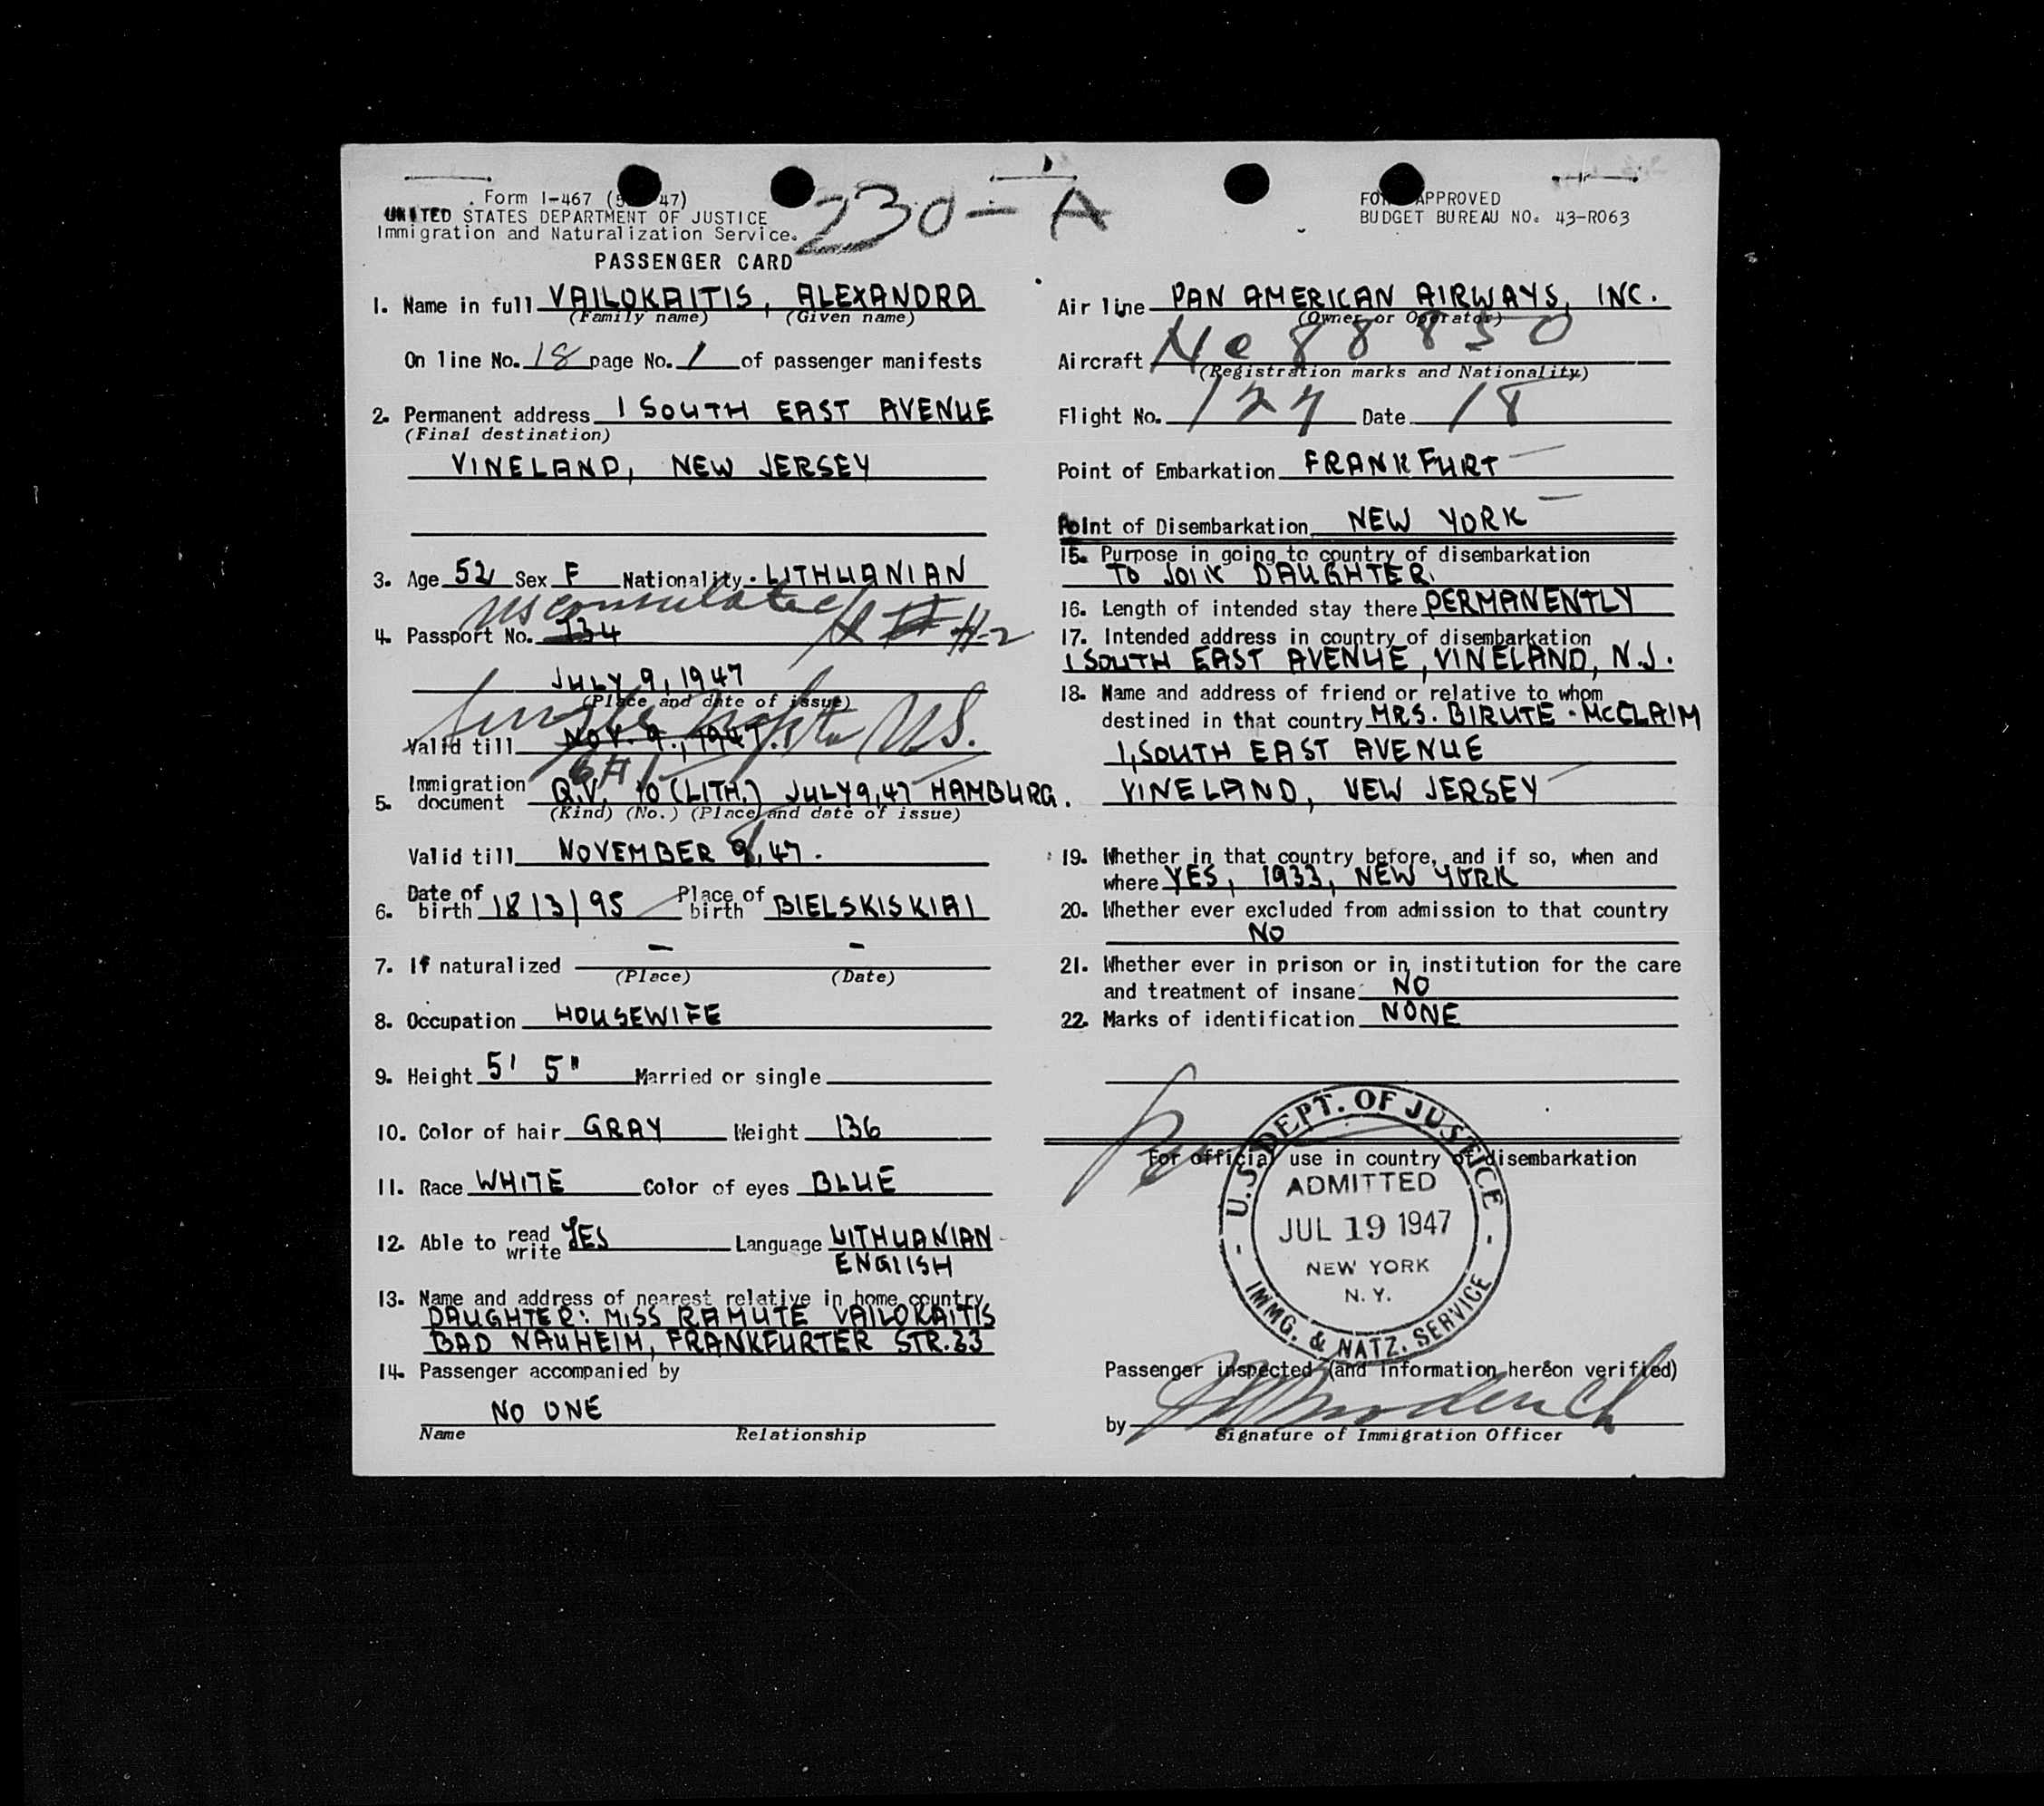 Form I-467 (5 47)
UNITED STATES DEPARTMENT OF JUSTICE
Immigration and Naturalization Service.
230-A
FORM APPROVED
BUDGET BUREAU NO. 43-R063
PASSENGER CARD
1. Name in full VAILOKAITIS, ALEXANDRA
(Family name) (Given name)
On line No. 18 page No. 1 of passenger manifests
2. Permanent address 1 SOUTH EAST AVENUE
(Final destination)
VINELAND, NEW JERSEY
3. Age 52 Sex F Nationality LITHUANIAN
US consulate
4. Passport No. 134
JULY 9, 1947
(Place and date of issue)
Valid till NOV. 9., 1947.
5. Immigration document Q.V, 10 (LITH.) JULY 9,47 HAMBURG.
(Kind) (No.) (Place and date of issue)
Valid till NOVEMBER 9,47.
6. Date of birth 18/3/95 Place of birth BIELSKISKIAI
7. If naturalized - -
(Place) (Date)
8. Occupation HOUSEWIFE
9. Height 5' 5" Married or single
10. Color of hair GRAY Weight 136
11. Race WHITE Color of eyes BLUE
12. Able to read write YES Language LITHUANIAN
ENGLISH
13. Name and address of nearest relative in home country
DAUGHTER: MISS RAMUTE VAILOKAITIS
BAD NAUHEIM, FRANKFURTER STR.33
14. Passenger accompanied by
NO ONE
Name Relationship
Air line PAN AMERICAN AIRWAYS, INC.
(Owner or Operator)
Aircraft Nc 88850
(Registration marks and Nationality)
Flight No. 127 Date 18
Point of Embarkation FRANKFURT
Point of Disembarkation NEW YORK
15. Purpose in going to country of disembarkation
TO JOIN DAUGHTER.
16. Length of intended stay there PERMANENTLY
17. Intended address in country of disembarkation
1 SOUTH EAST AVENUE, VINELAND, N.J.
18. Name and address of friend or relative to whom
destined in that country MRS. BIRUTE McCLAIM
1, SOUTH EAST AVENUE
VINELAND, NEW JERSEY
19. Whether in that country before, and if so, when and
where YES, 1933, NEW YORK
20. Whether ever excluded from admission to that country
NO
21. Whether ever in prison or in institution for the care
and treatment of insane NO
22. Marks of identification NONE
For official use in country of disembarkation
U.S. DEPT. OF JUSTICE
ADMITTED
JUL 19 1947
NEW YORK
N. Y.
IMMG. & NATZ. SERVICE
Passenger inspected (and information hereon verified)
by
Signature of Immigration Officer